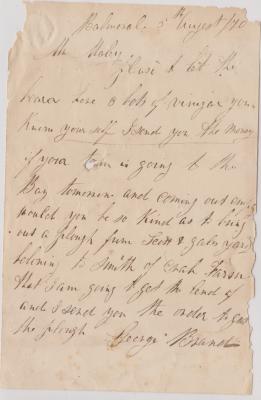 Balmoral 5th August /70
Mr
Please to let the
bearer have 2 bots of vinigar you
know your self I send you the money
if your team is going to the
Bay tomorrow and coming out emty
would you be so kind as to bring
out a plough from Scott & yard
belonin to Smith of
that I am going to get the lend of
and I send you the order to get
the plough
George Brand